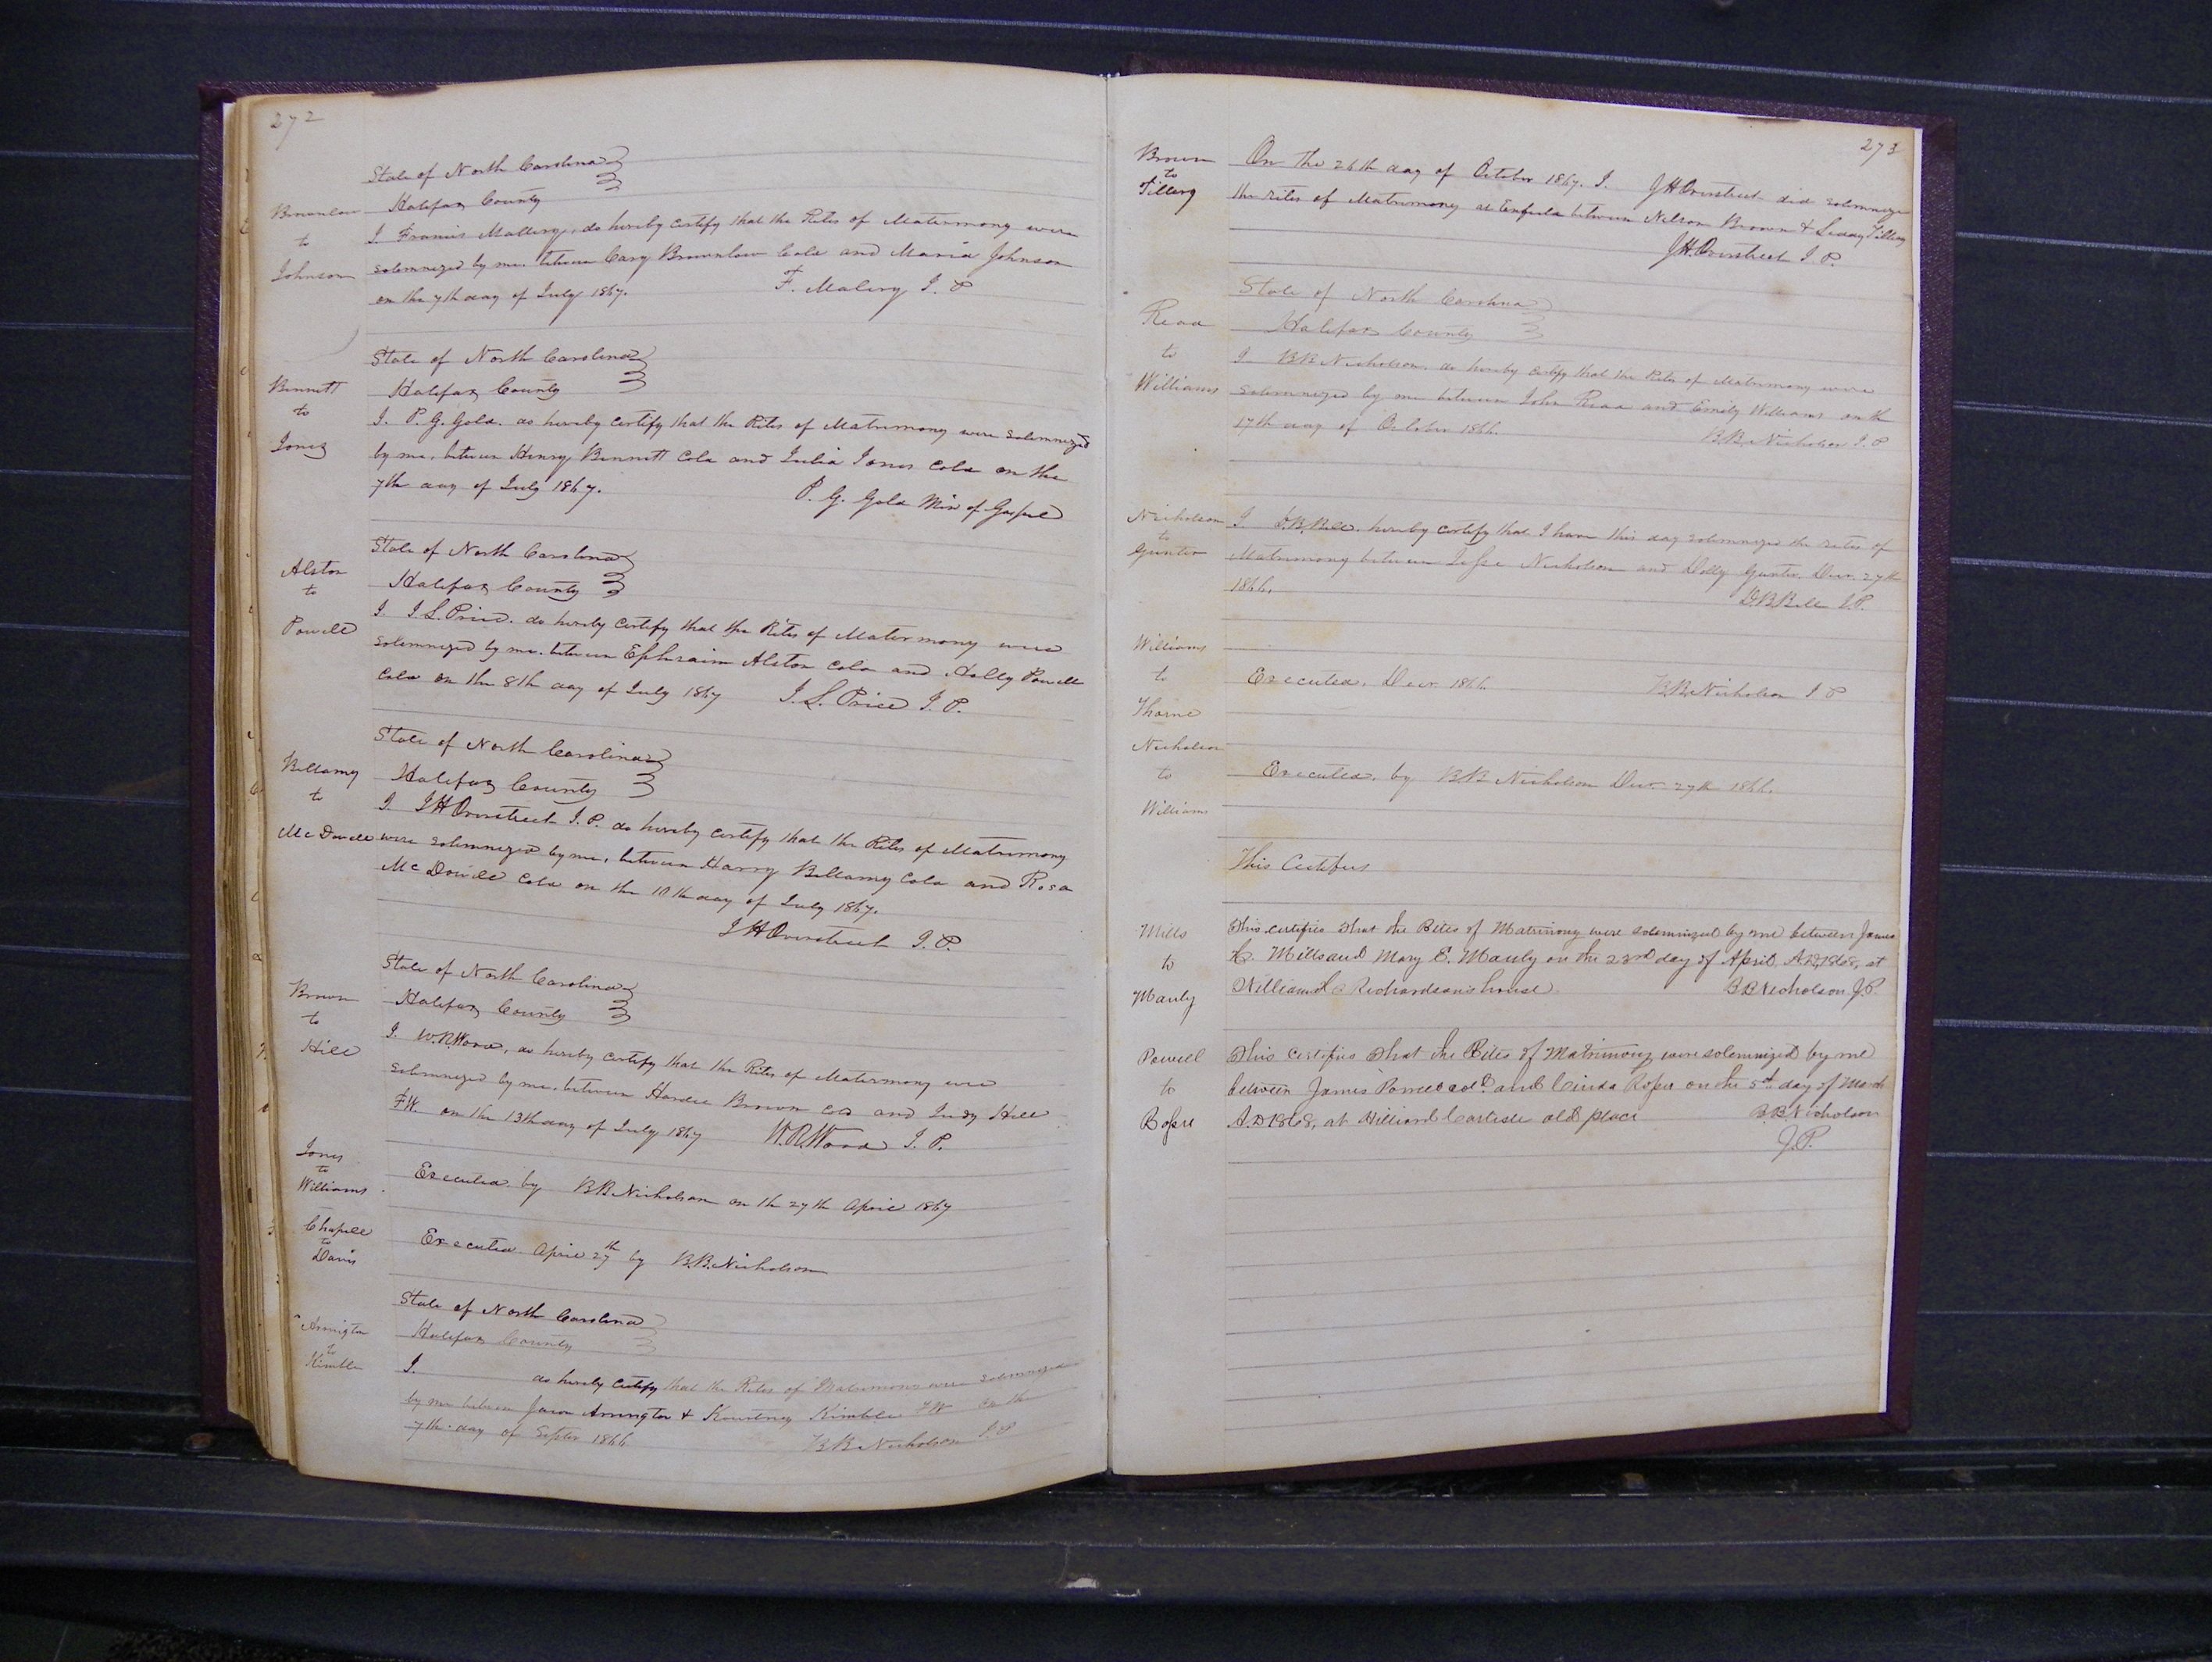 272
State of North Carolina
Halifax County
Brownlow
to
Johnson
I Francis Mallery, do hereby certify that the Rites of Matermony were
solemnezed by me. between Cary Brownlow Cold and Maria Johnson
on the 7th day of July 1867. F. Malery J. P
State of North Carolina
Halifax County
Bennett
to
Jones
I. P. G. Gold. do hereby certify that the Rites of Matrimony were solemnezed
by me, between Henry Bennett Cold and Julia Jones Cold on the
7th day of July 1867. P. G. Gold Min of Gospel
State of North Carolina
Halifax County
Alston
to
Powell
I. J. L. Price. do hereby certify that the Rites of Matermony were
solemnezed by me. between Ephraim Alston Cold and Holly Powell
Cold on the 8th day of July 1867 J. L. Price J. P.
State of North Carolina
Halifax County
Bellamy
to
McDowell
I. J H Overstreet J. P. do hereby certify that the Rites of Matrimony
were solemnezed by me, between Harry Bellamy Cold and Rosa
McDowell Cold on the 10th day of July 1867.
J H Overstreet J. P.
State of North Carolina
Halifax County
Brown
to
Hill
I. W. R. Wood, do hereby certify that the Rites of Matermony were
solemnezed by me. between Hardee Brown Cod and Judy Hill
F.W. on the 13th day of July 1867 W. R. Wood J. P.
Jones
to
Williams
Executed by B B Nicholson on th 27th April 1867
Chapell
to
Davis
Executed April 27th by B. B. Nicholson
State of North Carolina
Halifax County
Arrington
to
Kimble
I. do hereby Certify that the Rites of Matrimony were solemnezed
by me between Jacon Arrington & Kourtney Kimble F W on the
7th day of Septer 1866. B B Nicholson J. P
273
Brown
to
Tillery
On the 26th day of October 1867. I. J H Overstreet did solemneze
the rites of Matrimony at Enfield between Nelson Brown & Tillery
J H. Overstreet J. P.
State of North Carolina
Halifax County
Read
to
Williams
I B B Nicholson. do hereby certify that the Rites of Matrimony were
solemnezed by me between John Read and Emily Williams on th
17th day of October 1866. B B. Nicholson J. P
Nicholson
to
Gunter
I D. B. Bell. hereby certify that I have this day solemnezed the rites of
Matrimony between Jesse Nicholson and Dolly Gunter. Decr. 27th
1866. D. B Bell J. P.
Williams
to
Thorne
Executed. Decr. 1866. B. B. Nicholson J P
Nicholson
to
Williams
Executed. by B B Nicholson Decr 27th 1866.
This Certifies
Mills
to
Manly
This certifies That the Rites of Matrimony were solemnized by me between James
H. Mills and Mary E. Manly on the 23rd day of April A.D. 1868, at
Richardson's house. B B Nicholson J. P.
Powell
to
Roper
This certifies That the Rites of Matrimony were solemnized by me
between James Powell cold. and Cinda Roper on the 5th day of March
A.D 1868, at Hilliard Carlisle old place B. B Nicholson
J. P.